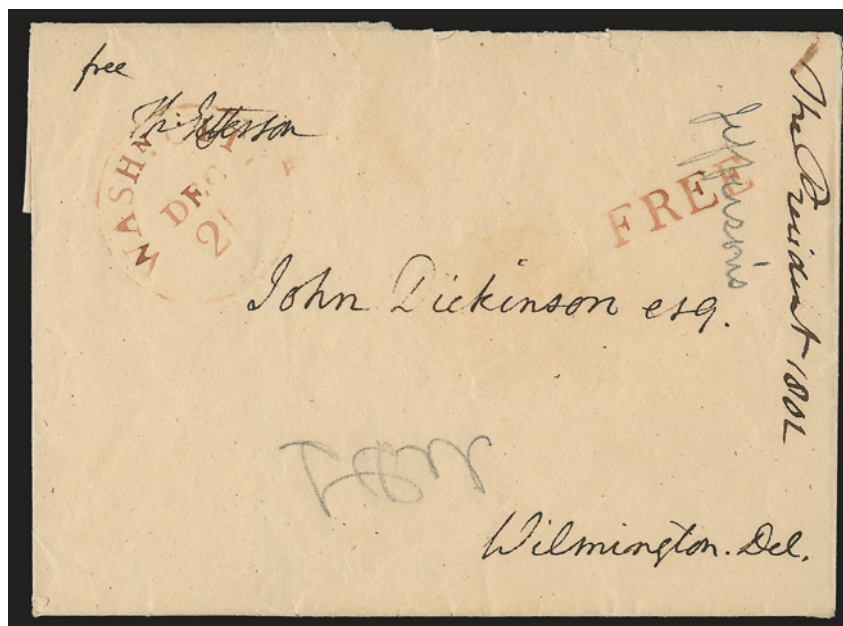 free
Th: Jefferson
WASHN. CITY
DEC
FREE
Jefferson's
The President 1801
John Dickinson esq.
Wilmington. Del.